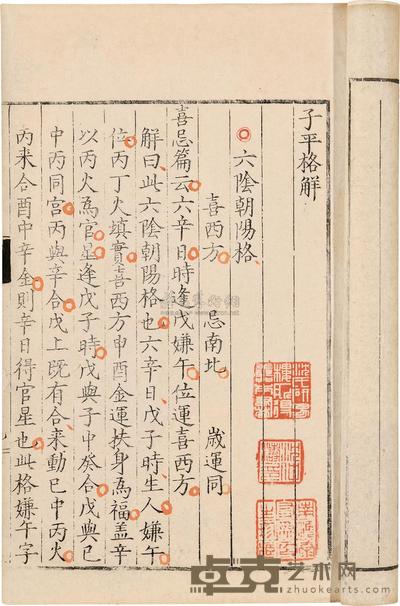 子平格解
六陰朝陽格
喜西方 忌南北 歲運同
喜忌篇云六辛日時逢戊嫌午位運喜西方
解曰此六陰朝陽格也六辛日戊子時生人嫌午
位丙丁火填實喜西方申酉金運扶身為福盖辛
以丙火為官星逢戊子時戊與子中癸合戊與巳
中丙同宫丙與辛合戊上既有合来動巳中丙火
丙来合酉中辛金則辛日得官星也此格嫌午字
卓克艺术网
www.zhuokearts.com